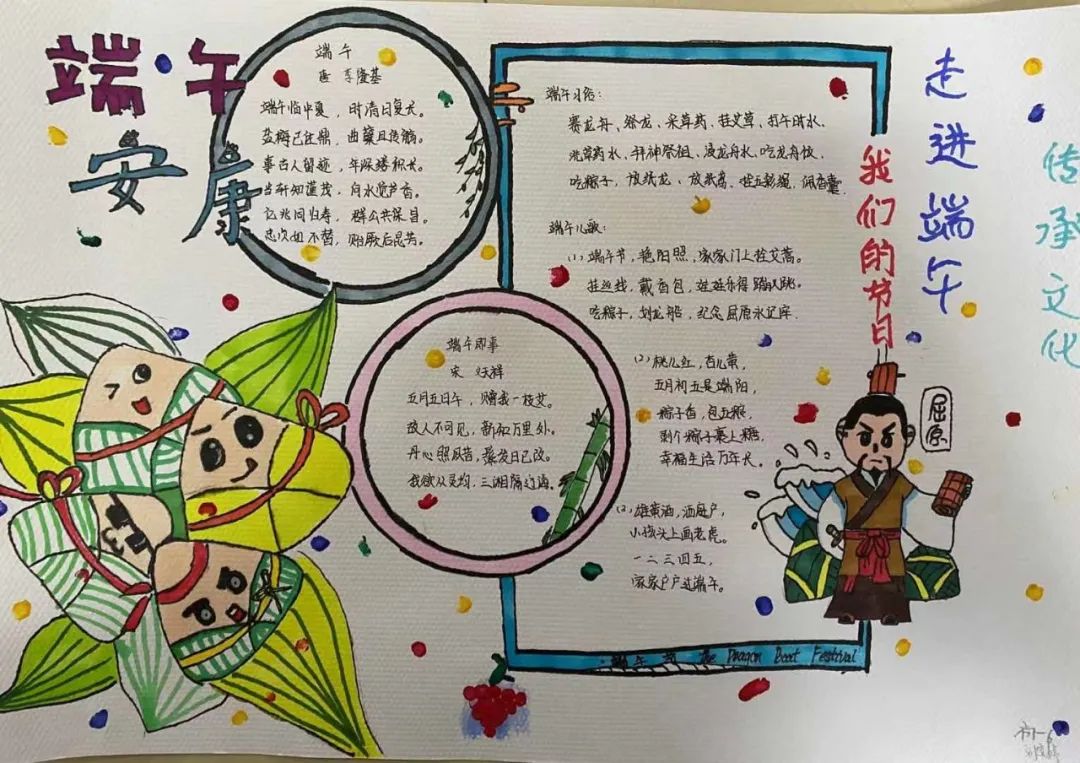 端午
安康
端午
唐 李隆基
端午临中夏，时清日复长。
盐梅已佐鼎，曲糵且传觞。
事古人留迹，年深缕积长。
当轩知槿茂，向水觉芦香。
亿兆同归寿，群公共保昌。
忠贞如不替，贻厥后昆芳。
端午即事
宋 文天祥
五月五日午，赠我一枝艾。
故人不可见，新知万里外。
丹心照夙昔，鬓发日已改。
我欲从灵均，三湘隔辽海。
端午习俗：
赛龙舟、祭龙、采草药、挂艾草、打午时水、
洗草药水、拜神祭祖、浸龙舟水、吃龙舟饭、
吃粽子、放纸龙、放纸鸢、拴五彩绳、佩香囊
端午儿歌：
(1) 端午节，艳阳照，家家门上挂艾蒿。
挂丝线，戴香包，娃娃乐得
吃粽子，划龙船，纪念屈原永记牢
(2) 桃儿红，杏儿黄，
五月初五是端阳，
粽子香，包五粮，
剥个粽子裹上糖，
幸福生活万年长。
雄黄酒，洒庭户，
小孩头上画老虎。
一二三四五，
家家户户过端午。
端午节 The Dragon Boat Festival
我们的节日
走进端午
传承文化
屈原